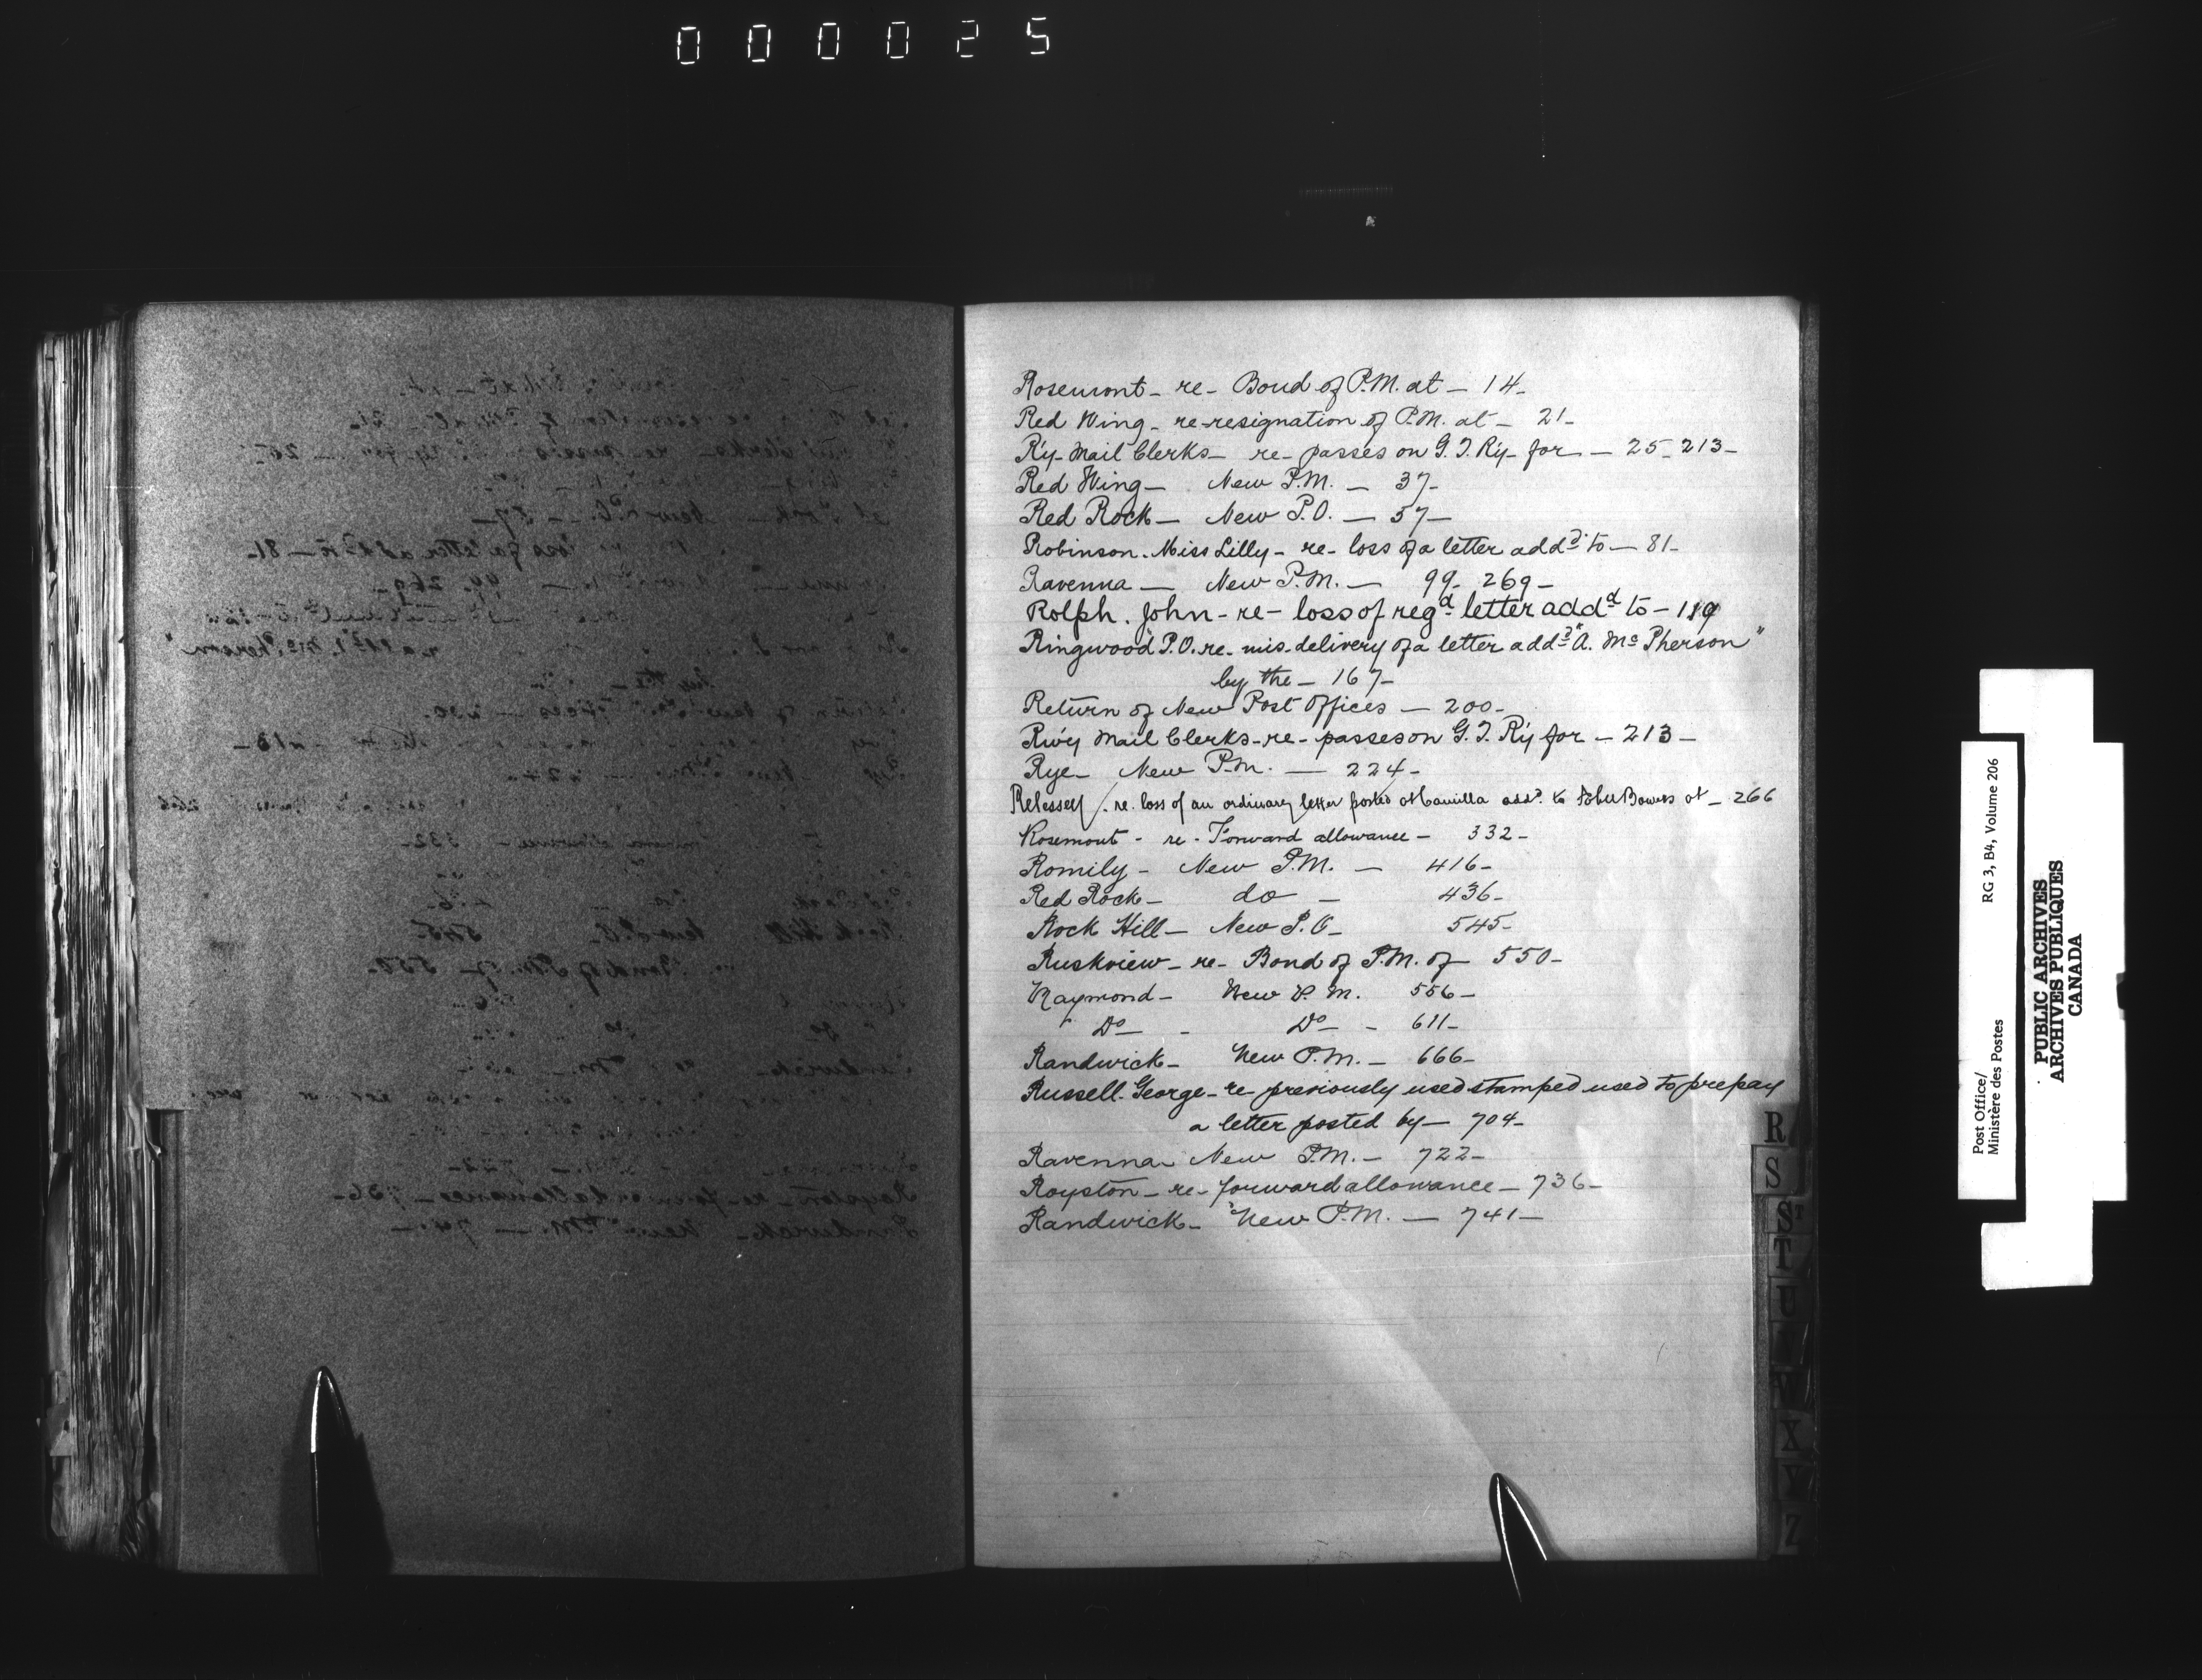 000025
Rosemont - re - Bond of P.M. at - 14 -
Red Wing - re - resignation of P.M. at - 21 -
R'y - Mail Clerks - re - passes on G. T. R'y - for - 25 - 213 -
Red Wing - New P.M. - 37 -
Red Rock - New P.O. - 57 -
Robinson. Miss Lilly - re - loss of a letter addd. to - 81 -
Ravenna - New P.M. - 99 - 269 -
Rolph. John - re - loss of regd letter addd to - 119
Ringwood P.O. re - mis-delivery of a letter addd "A. Mc Pherson"
by the - 167 -
Return of New Post Offices - 200 -
Rw'y Mail Clerks - re - passes on G. T. R'y for - 213 -
Rye - New P.M. - 224 -
re. loss of an ordinary letter posted at Camilla addd. to Bowers at - 266
Rosemont - re - Forward allowance - 332 -
Romily - New P.M. - 416 -
Red Rock - do - 436 -
Rock Hill - New P.O - 545 -
Ruskview - re - Bond of P.M. of 550 -
Raymond - New P. M. 556 -
" Do - Do - 611 -
Randwick - New P.M. - 666 -
Russell. George - re - previously used stamped used to prepay
a letter posted by - 704 -
Ravenna New P.M. - 722 -
Royston - re - forward allowance - 736 -
Randwick - New P.M. - 741 -
R
S
ST
T
U
V
X
Y
Z
Post Office/
Ministère des Postes
RG 3, B4, Volume 206
PUBLIC ARCHIVES
ARCHIVES PUBLIQUES
CANADA